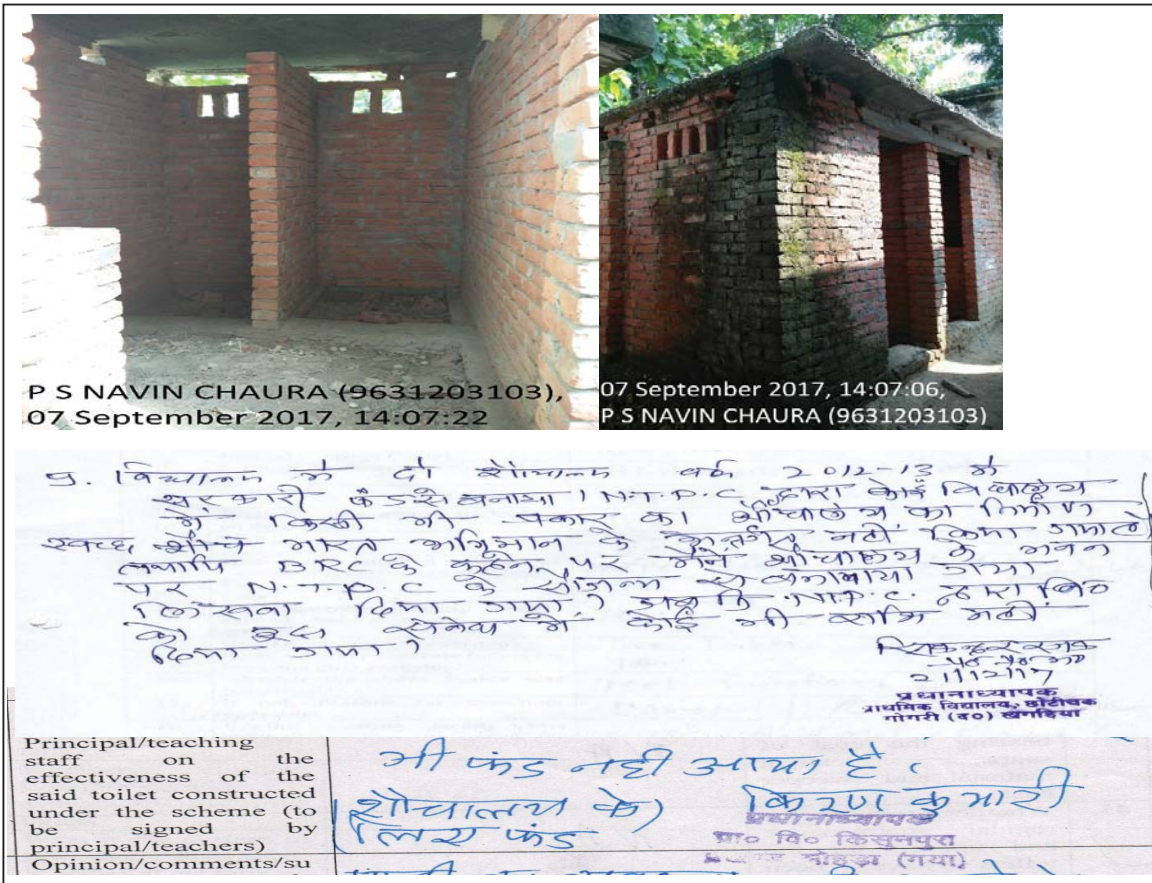 P S NAVIN CHAURA (9631203103),
07 September 2017, 14:07:22
07 September 2017, 14:07:06,
P S NAVIN CHAURA (9631203103)
विद्यालय में दो शौचालय वर्ष 2012-13 में
सरकारी फंड से बनाया। N.T.P.C द्वारा कोई विद्यालय
में किसी भी प्रकार का शौचालय का निर्माण
स्वच्छ भारत अभियान के अन्तर्गत नहीं किया गया है
तथापि BRC के कहने पर मैंने शौचालय के भवन
पर N.T.P.C के सौजन्य से बनवाया गया
लिखवा दिया गया। जबकि N.T.P.C. द्वारा
को इस में कोई भी राशि नहीं
दिया गया।
21/12/17
प्रधानाध्यापक
प्राथमिक विद्यालय, छोटीचक
गोगरी (ख०) खगड़िया
Principal/teaching
staff on the
effectiveness of the
said toilet constructed
under the scheme (to
be signed by
principal/teachers)
भी फंड नहीं आया है।
(शौचालय के) किरण कुमारी
लिए फंड
प्रधानाध्यापक
प्रा० वि० किसुनपुरा
मोहड़ा (गया)
Opinion/comments/su